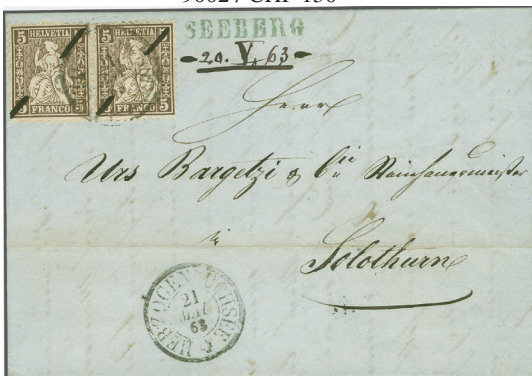 5 HELVETIA 5 HELVETIA
5 FRANCO 5 FRANCO 5
SEEBERG
20. V. 63
Herrn
Urs Bargetzi & Cie Steinhauermeister
in
Solothurn
HERZOGENBUCHSEE
21
MAI
63